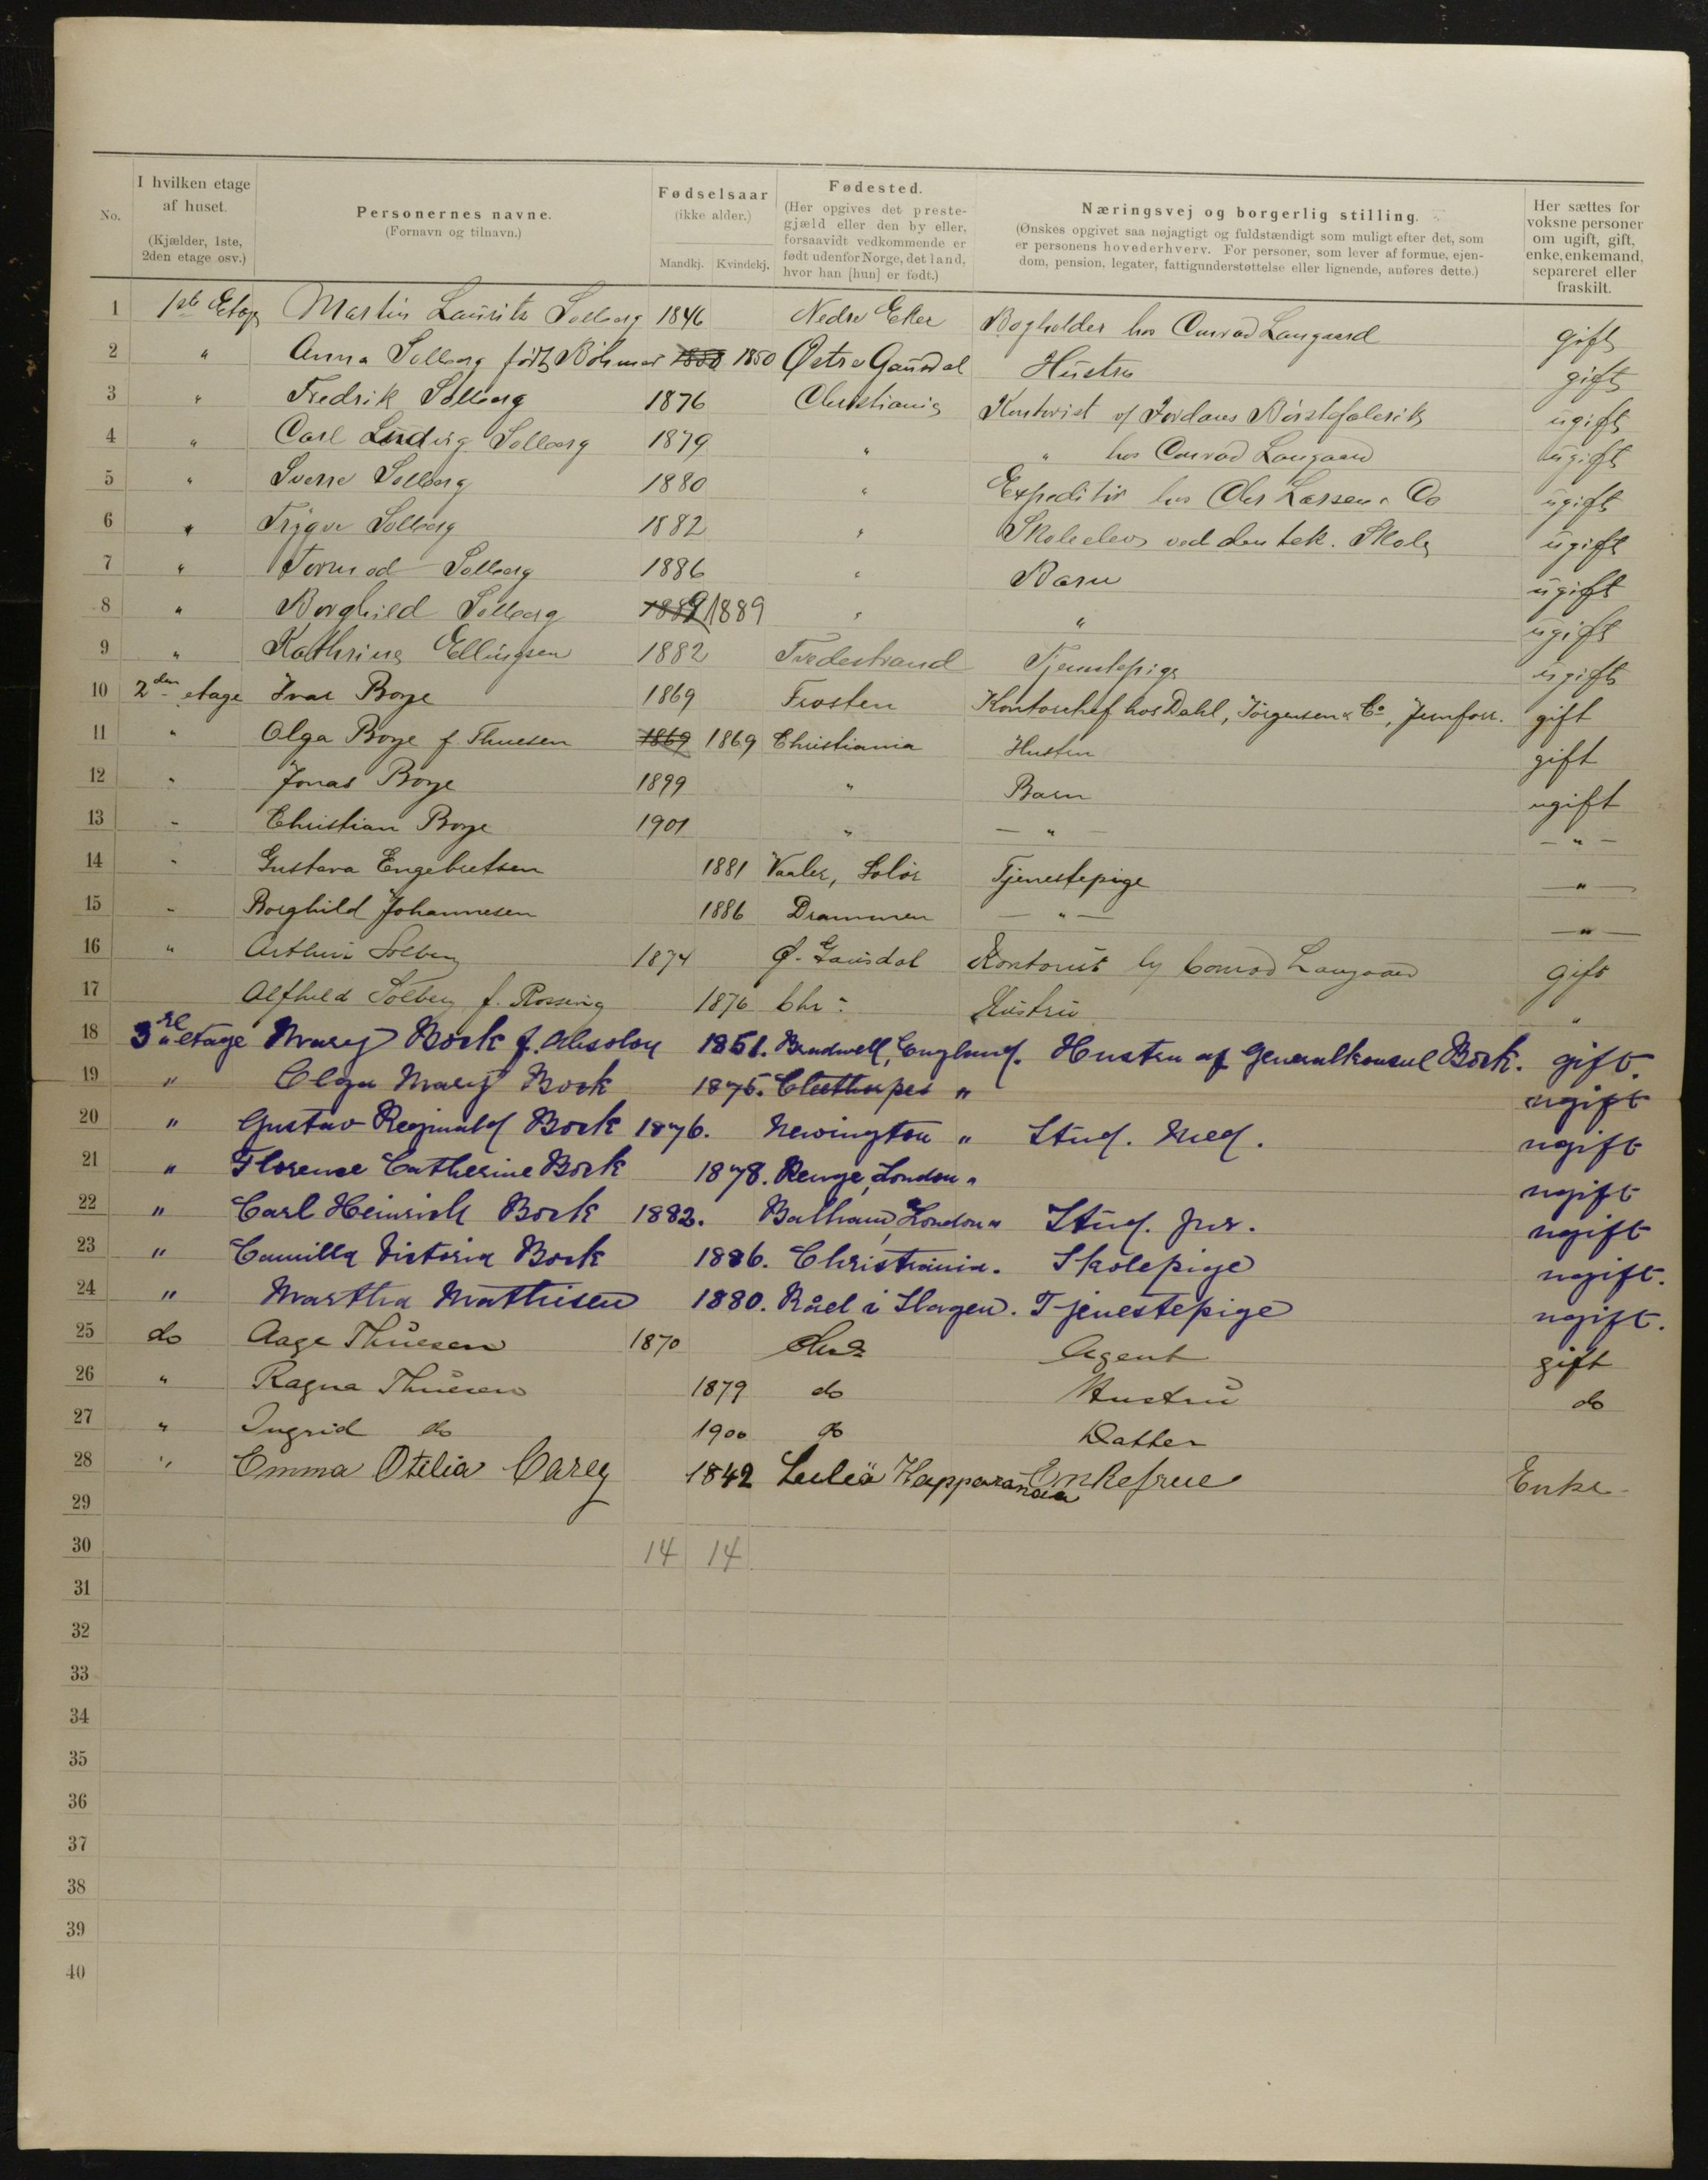 No.
I hvilken etage
af huset.
(Kjælder, 1ste,
2den etage osv.)
Personernes navne.
(Fornavn og tilnavn.)
Fødselsaar
(ikke alder.)
Mandkj. Kvindekj.
Fødested.
(Her opgives det preste-
gjæld eller den by eller,
forsaavidt vedkommende er
født udenfor Norge, det land,
hvor han [hun] er født.)
Næringsvej og borgerlig stilling.
(Ønskes opgivet saa nøjagtigt og fuldstændigt som muligt efter det, som
er personens hovederhverv. For personer, som lever af formue, ejen-
dom, pension, legater, fattigunderstøttelse eller lignende, anføres dette.)
Her sættes for
voksne personer
om ugift, gift,
enke, enkemand,
separeret eller
fraskilt.
1 1ste Etage Martin Lauritz Solberg 1846 Nedre Eker Bogholder hos Conrad Langaard gift
2 " Anna Solberg født Böhmer 1850 1850 Østre Gausdal Hustru gift
3 " Fredrik Solberg 1876 Christiania Kontorist v/ Jordans Børstefabrik ugift
4 " Carl Ludvig Solberg 1879 " " hos Conrad Langaard ugift
5 " Sverre Solberg 1880 " Expeditør hos Chr Larsen & Co ugift
6 " Trygve Solberg 1882 " Skoleelev ved den tek. Skole ugift
7 " Tormod Solberg 1886 " Barn ugift
8 " Borghild Solberg 1889 1889 " " ugift
9 " Kathrine Ellingsen 1882 Tvedestrand Tjenstepige ugift
10 2den etage Ivar Borge 1869 Frosten Kontorchef hos Dahl, Jörgensen & Co, Jernforr. gift
11 " Olga Borge f. Thuesen 1869 1869 Christiania Hustru gift
12 " Jonas Borge 1899 " Barn ugift
13 " Christian Borge 1901 " — " — — " —
14 " Gustava Engebretsen 1881 Vaaler, Solør Tjenestepige — " —
15 " Borghild Johannesen 1886 Drammen — " — — " —
16 " Arthur Solberg 1874 Ø. Gausdal Kontorist hj Conrad Langaard gift
17 Alfhild Solberg f. Rossing 1876 Chr: Hustru "
18 3die etage Mary Bock f. Absolon 1851. Bradwell, England. Hustru af Generalkonsul Bock. gift.
19 " Olga Mary Bock 1875. Cleethorpes " ugift
20 " Gustav Reginald Bock 1876. Newington " Stud. Med. ugift
21 " Florence Catherine Bock 1878. Penge, London " ugift
22 " Carl Heinrich Bock 1882. Balham, London " Stud. jur. ugift
23 " Camilla Victoria Bock 1886. Christiania. Skolepige ugift.
24 " Martha Mathisen 1880. Råel i Slagen. Tjenestepige ugift.
25 do Aage Thuesen 1870 Chra Agent gift
26 " Ragna Thuesen 1879 do Hustru do
27 " Ingrid do 1900 do Datter
28 " Emma Otilia Carey 1842 Luleä Happaranda Enkefrue Enke
29
30 14 14
31
32
33
34
35
36
37
38
39
40